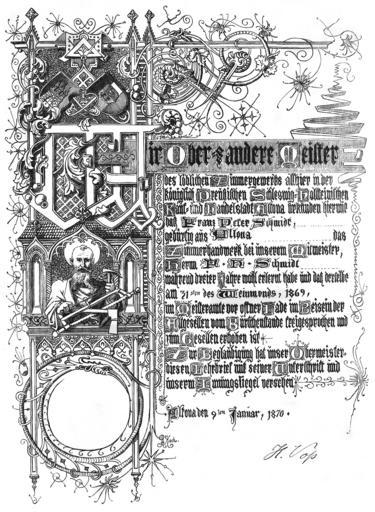 Wir Ober & andere Meister
des löblichen Zimmergewerks allhier in der
Königlich Preußischen Schleswig-Holsteinischen
Kauf- und Handelsstadt Altona urkunden hiermit
daß Franz Peter Schmidt,
gebürtig aus Altona das
Zimmerhandwerk bei unserem Mitmeister,
Herrn P. H. Schmidt
während dreier Jahre wohl erlernt habe und daß derselbe
am 31sten des 1869,
im Meisteramte vor offner Lade im Beisein der
Altgesellen vom Burschenstande freigesprochen und
zum Gesellen erhoben ist.
Zur Beglaubigung hat unser Obermeister
diesen Lehrbrief mit seiner Unterschrift und
unserm Innungssiegel versehen.
Altona den 9ten Januar, 1870.
H. Voß